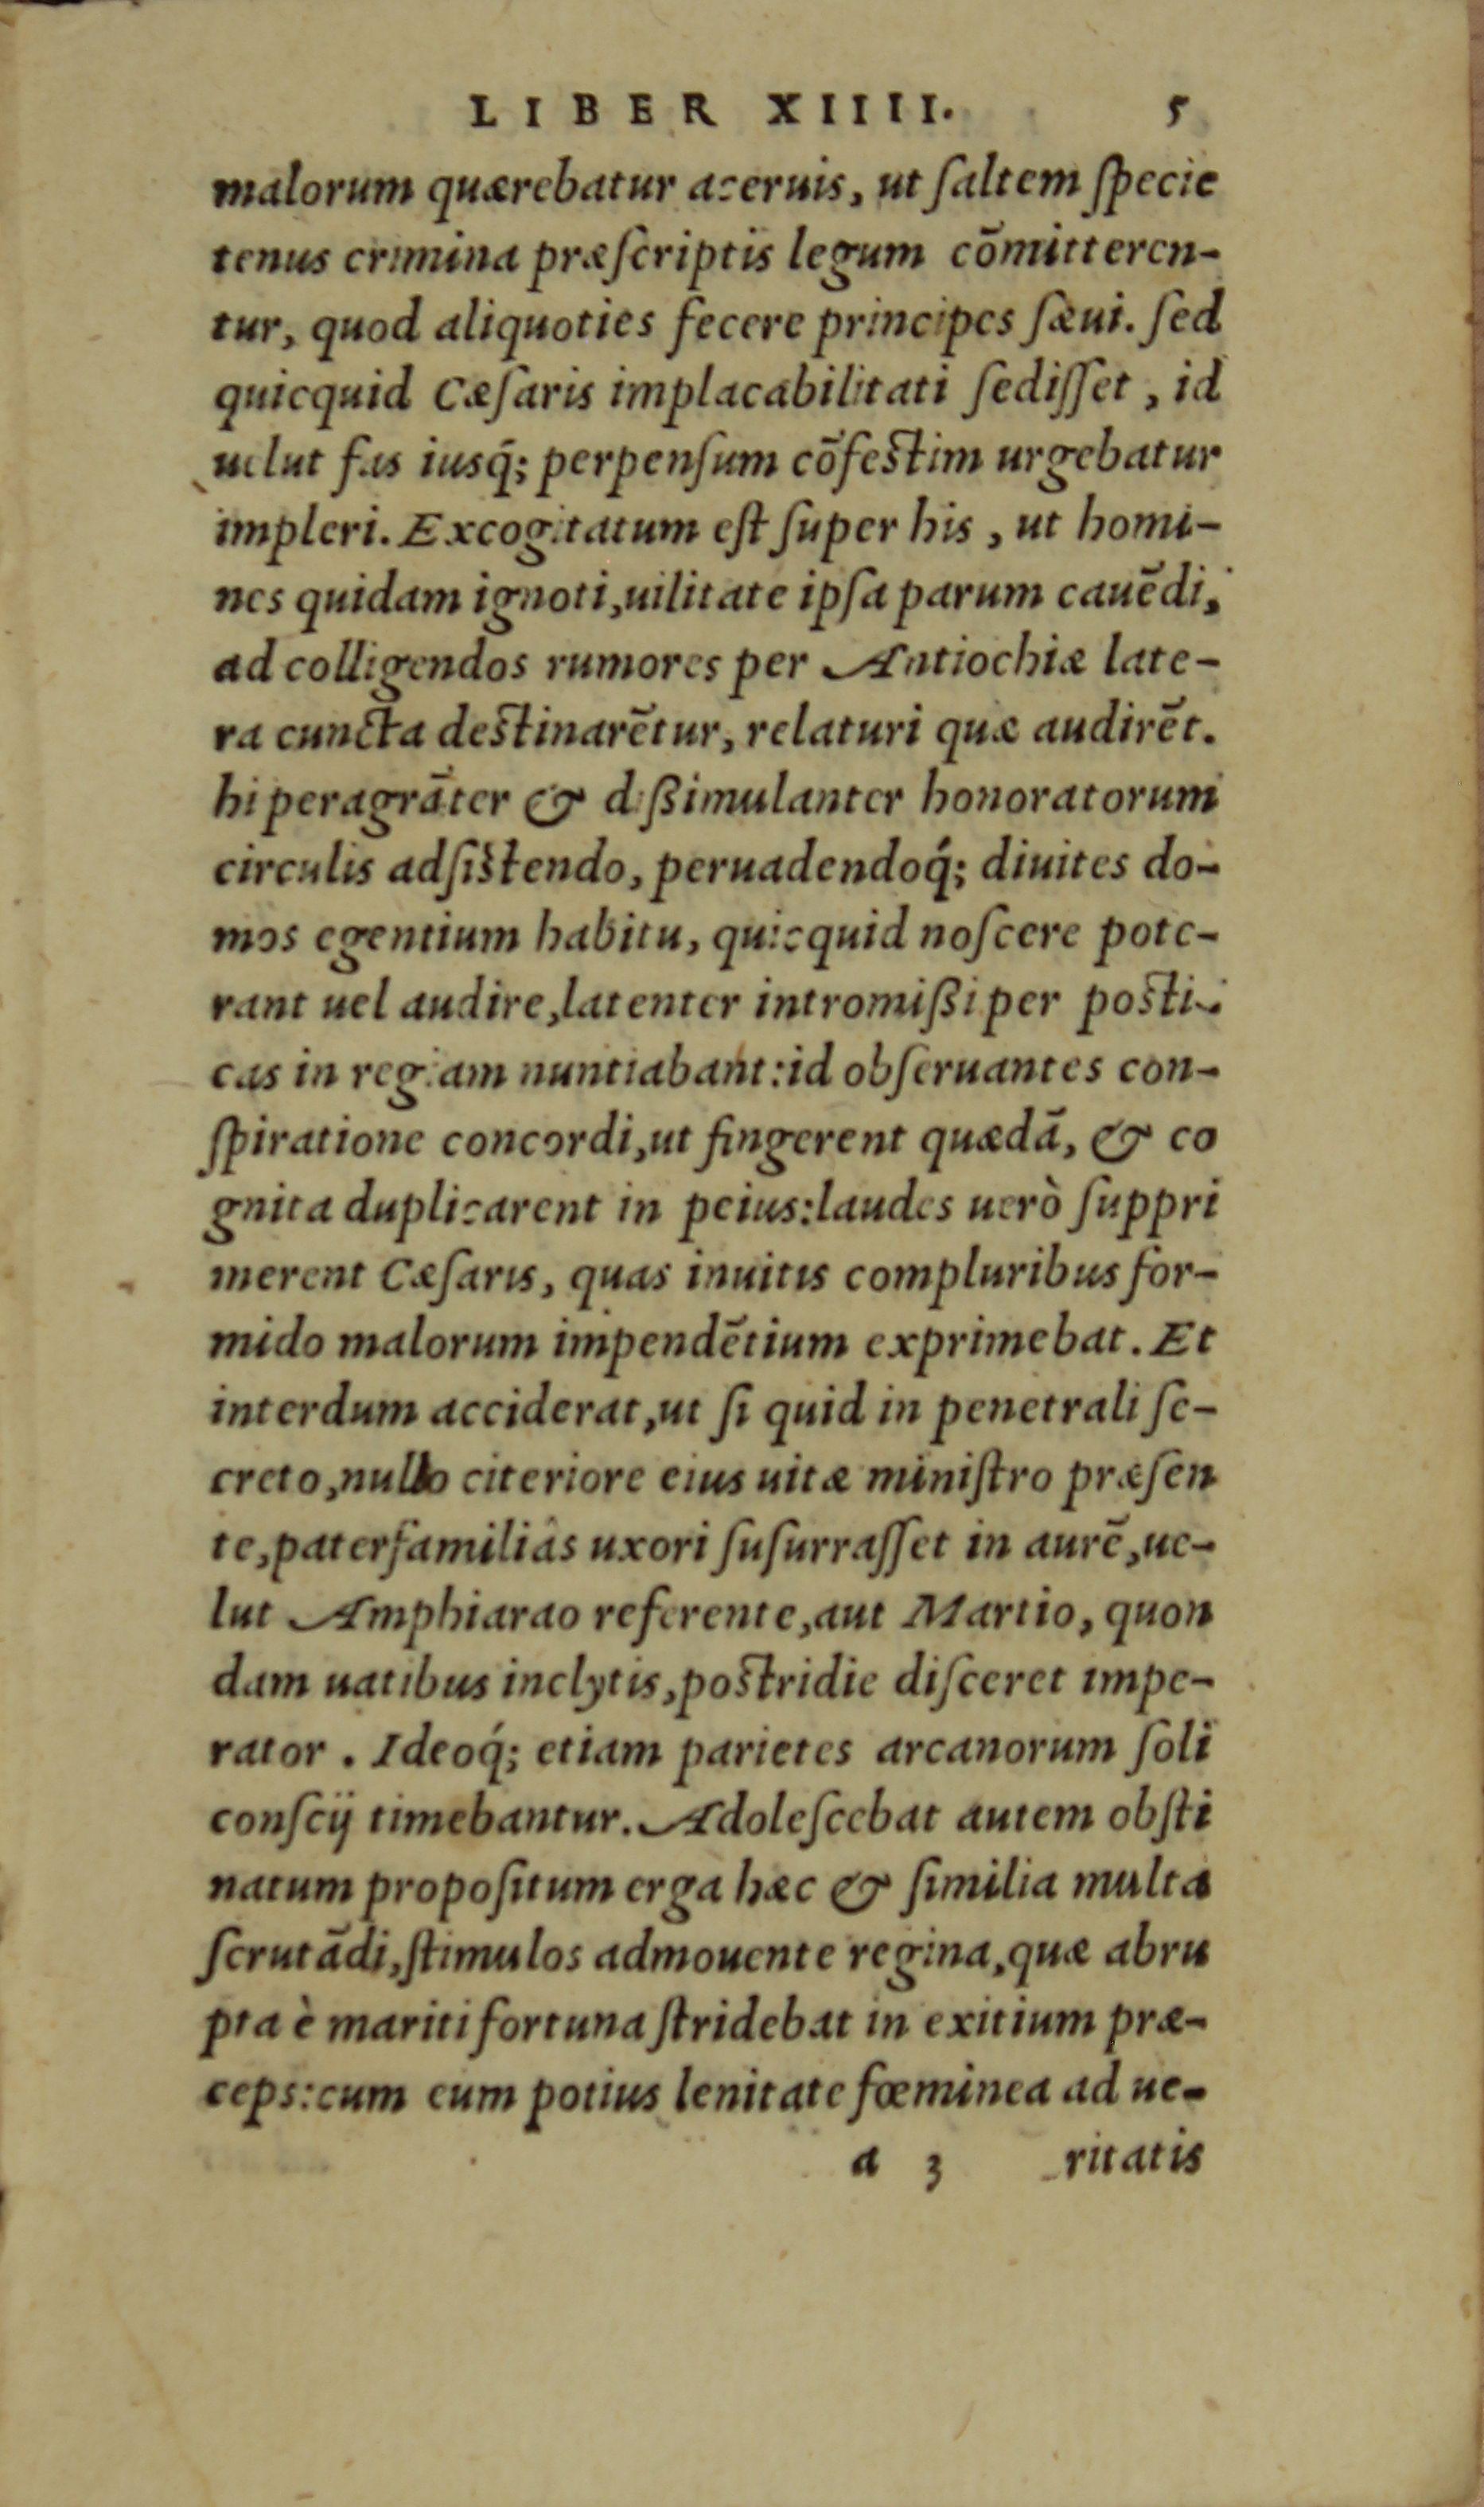 LIBER XIIII. 5
malorum quærebatur aceruis, ut ſaltem ſpecie
tenus crimina præſcriptis legum cōmitteren-
tur, quod aliquoties fecere principes ſæui. ſed
quicquid Cæſaris implacabilitati ſediſſet, id
uelut fas iusq́; perpenſum cōfeſtim urgebatur
impleri. Excogitatum eſt ſuper his, ut homi-
nes quidam ignoti, uilitate ipſa parum cauēdi,
ad colligendos rumores per Antiochiæ late-
ra cuncta deſtinarētur, relaturi quæ audirēt.
hi peragrāter & diſsimulanter honoratorum
circulis adſiſtendo, peruadendoq́; diuites do-
mos egentium habitu, quicquid noſcere pote-
rant uel audire, latenter intromiſsi per poſti-
cas in regiam nuntiabant: id obſeruantes con-
ſpiratione concordi, ut fingerent quædā, & co
gnita duplicarent in peius: laudes uerò ſuppri
merent Cæſaris, quas inuitis compluribus for-
mido malorum impendētium exprimebat. Et
interdum acciderat, ut ſi quid in penetrali ſe-
creto, nullo citeriore eius uitæ miniſtro præſen
te, paterfamiliâs uxori ſuſurraſſet in aurē, ue-
lut Amphiarao referente, aut Martio, quon
dam uatibus inclytis, poſtridie diſceret impe-
rator. Ideoq́; etiam parietes arcanorum ſoli
conſcij timebantur. Adoleſcebat autem obſti
natum propoſitum erga hæc & ſimilia multa
ſcrutādi, ſtimulos admouente regina, quæ abru
pta è mariti fortuna ſtridebat in exitium præ-
ceps: cum eum potius lenitate fœminea ad ue-
a 3 ritatis